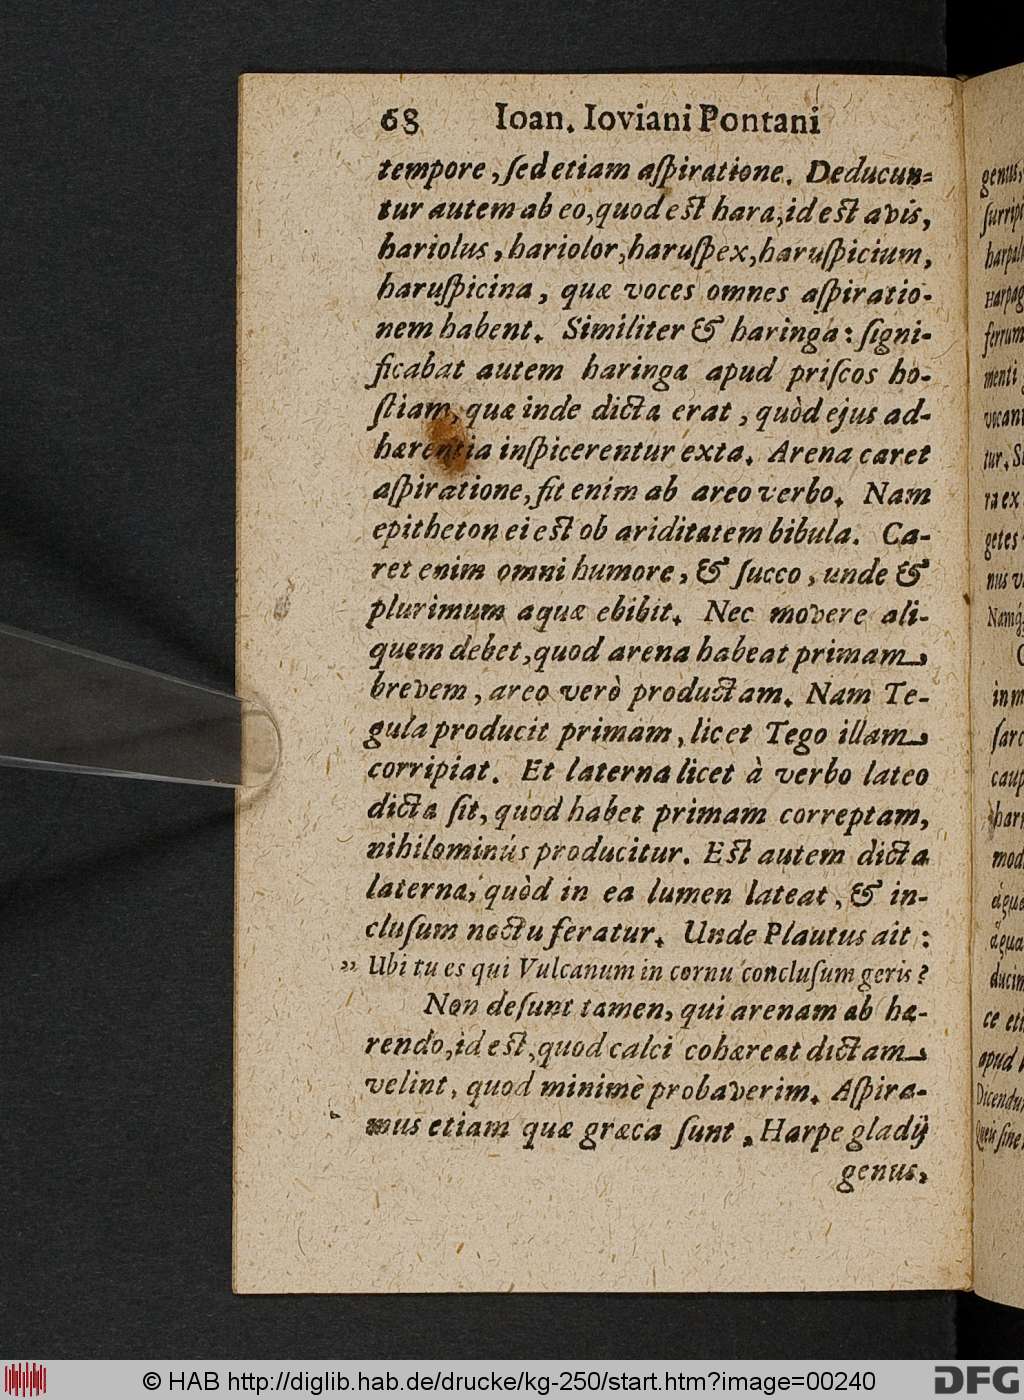 68 Ioan. Ioviani Pontani
tempore, ſed etiam aſpiratione. Deducun=
tur autem ab eo, quod eſt hara, id eſt avis,
hariolus, hariolor, haruſpex, haruſpicium,
haruſpicina, quæ voces omnes aſpiratio-
nem habent. Similiter & haringa: ſigni-
ficabat autem haringa apud priſcos ho-
ſtiam, quæ inde dicta erat, quòd ejus ad-
hærentia inſpicerentur exta. Arena caret
aſpiratione, fit enim ab areo verbo. Nam
epitheton ei eſt ob ariditatem bibula. Ca-
ret enim omni humore, & ſucco, unde &
plurimum aquæ ebibit. Nec movere ali-
quem debet, quod arena habeat primam
brevem, areo verò productam. Nam Te-
gula producit primam, licet Tego illam
corripiat. Et laterna licet à verbo lateo
dicta ſit, quod habet primam correptam,
nihilominùs producitur. Eſt autem dicta
laterna, quòd in ea lumen lateat, & in-
cluſum noctu feratur. Unde Plautus ait:
„ Ubi tu es qui Vulcanum in cornu concluſum geris?
Non deſunt tamen, qui arenam ab hæ-
rendo, id eſt, quod calci cohæreat dictam
velint, quod minimè probaverim. Aſpira-
mus etiam quæ græca ſunt, Harpe gladij
genus,
genus,
ſurripi
harpal
Harpag
ferrum
menti
vocant
tur. S
ra ex
getes
nus v
Namq́;
in m
ſarc
caup
harr
mod
ducim
ce eti
apud
Dicendu
Queis ſine
© HAB http://diglib.hab.de/drucke/kg-250/start.htm?image=00240
DFG